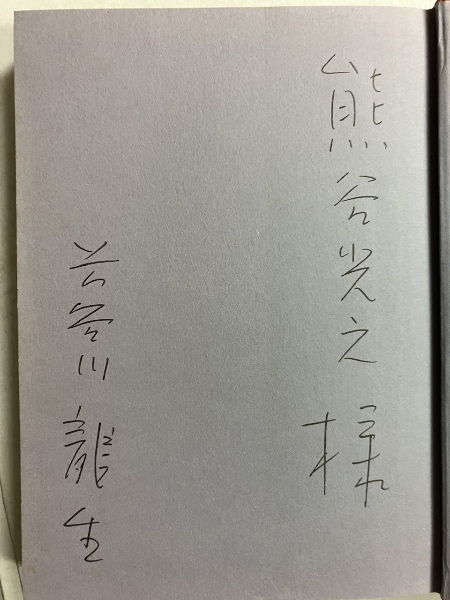 熊谷光之 様
長谷川龍生